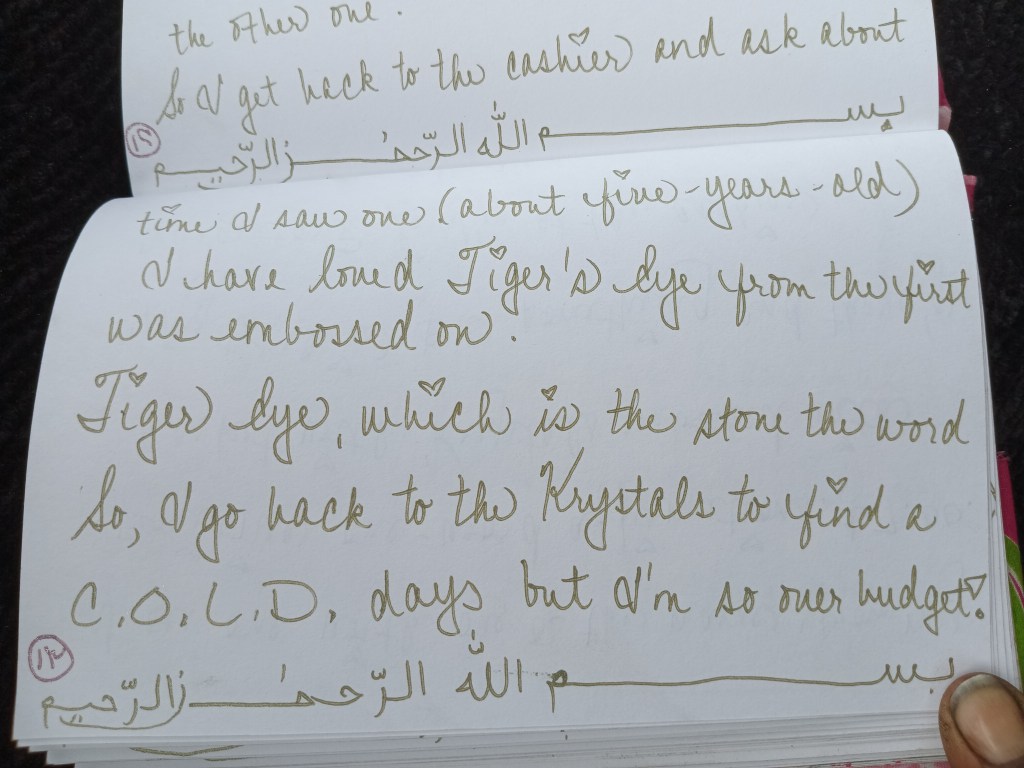 the other one.
So I get back to the cashier and ask about
بســـــــــم اللّٰه الرّحمٰـــــن الرّحيـــم
time I saw one (about five-years-old)
I have loved Tiger's Eye from the first
was embossed on.
Tiger Eye, which is the stone the word
So, I go back to the Krystals to find a
C.O.L.D. days but I'm so over budget!
بســـــــــم اللّٰه الرّحمٰـــــن الرّحيـــم